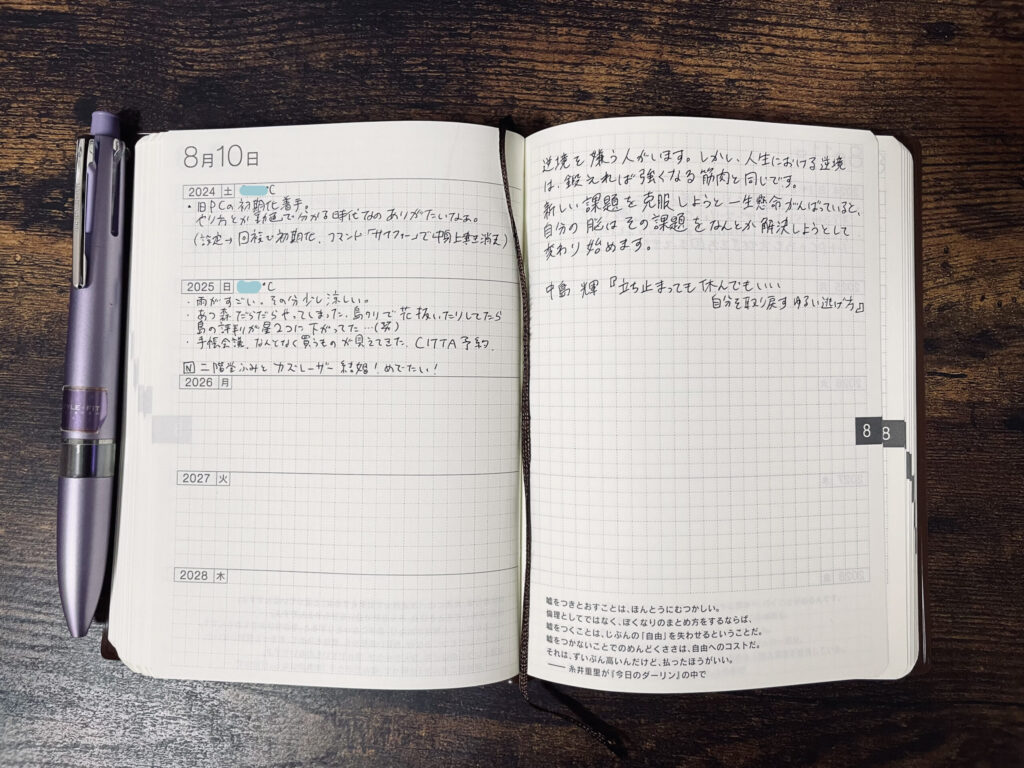 8月10日
2024 土 ℃
・旧PCの初期化着手。
やり方とか動画で分かる時代なの ありがたいなぁ。
(設定→回復で初期化、コマンド「サイファー」で 上書き消去)
2025 日 ℃
・雨がすごい。その分少し涼しい。
・あつ森だらだらやってしまった。島クリで花抜いたりしてたら
島の評判が星2つに下がってた…(笑)
・手帳会議、なんとなく買うものが見えてきた。CITTA予約。
N 二階堂ふみとカズレーザー結婚!めでたい!
2026 月
2027 火
2028 木
逆境を嫌う人がいます。しかし、人生における逆境
は、鍛えれば強くなる筋肉と同じです。
新しい課題を克服しようと一生懸命がんばっていると、
自分の脳はその課題をなんとか解決しようとして
変わり始めます。
中島 輝『立ち止まっても休んでもいい
自分を取り戻すゆるい逃げ方』
8 8
嘘をつきとおすことは、ほんとうにむつかしい。
倫理としてではなく、ぼくなりのまとめ方をするならば、
嘘をつくことは、じぶんの「自由」を失わせるということだ。
嘘をつかないことでのめんどくささは、自由へのコストだ。
それは、ずいぶん高いんだけど、払ったほうがいい。
—— 糸井重里が『今日のダーリン』の中で